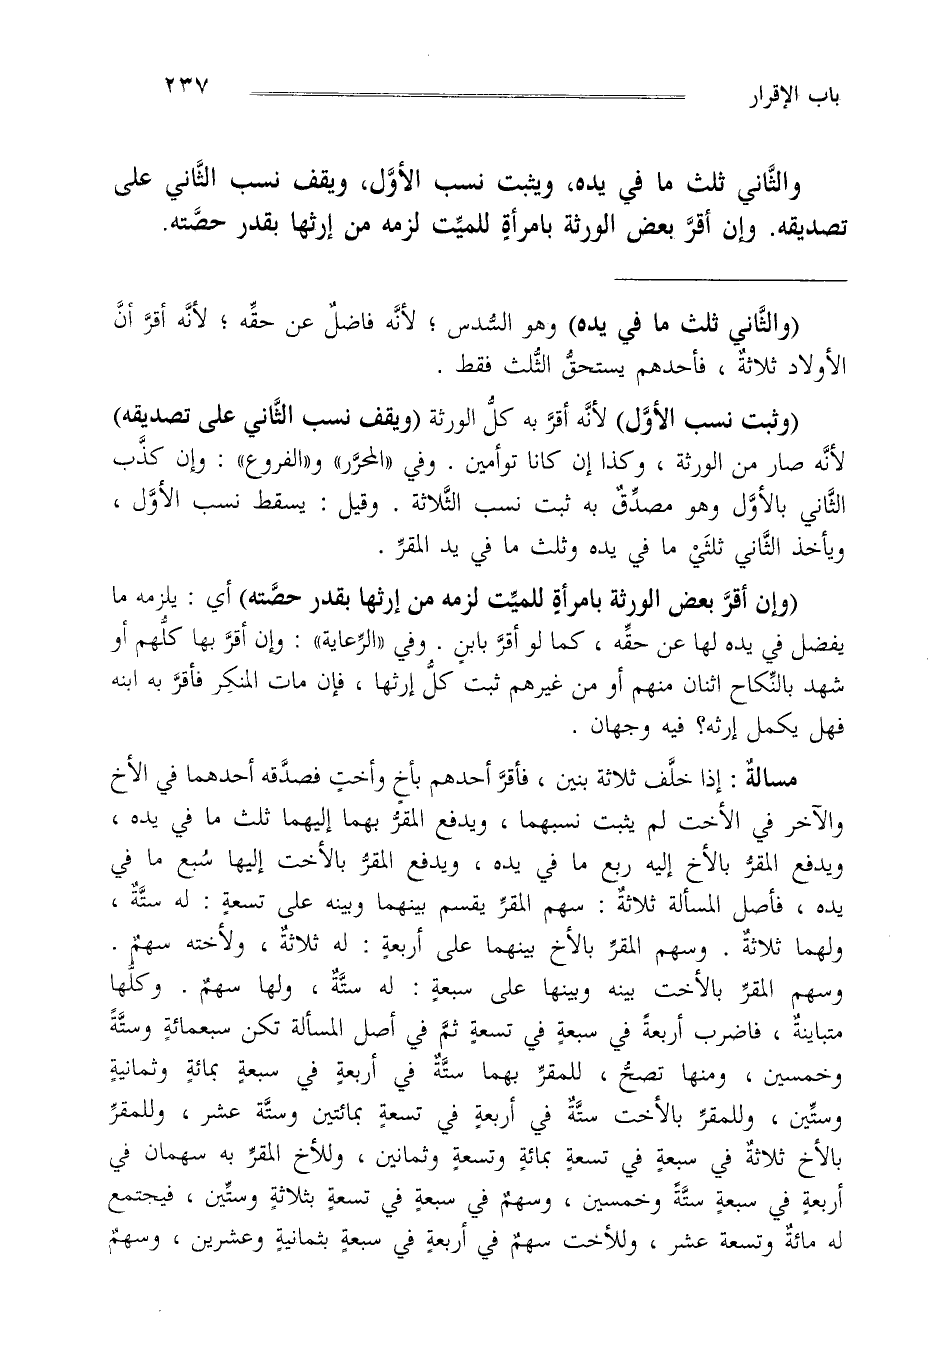 باب الإقرار ٢٣٧
والثَّاني ثلث ما في يده، ويثبت نسب الأوَّل، ويقف نسب الثَّاني على
تصديقه. وإن أقرَّ بعض الورثة بامرأةٍ للميِّت لزمه من إرثها بقدر حصَّته.
(والثَّاني ثلث ما في يده) وهو السُّدس ؛ لأنَّه فاضلٌ عن حقِّه ؛ لأنَّه أقرَّ أنَّ
الأولاد ثلاثةٌ ، فأحدهم يستحقُّ الثُّلث فقط .
(وثبت نسب الأوَّل) لأنَّه أقرَّ به كلُّ الورثة (ويقف نسب الثَّاني على تصديقه)
لأنَّه صار من الورثة ، وكذا إن كانا توأمين . وفي «المحرَّر» و«الفروع» : وإن كذَّب
الثَّاني بالأوَّل وهو مصدِّقٌ به ثبت نسب الثَّلاثة . وقيل : يسقط نسب الأوَّل ،
ويأخذ الثَّاني ثلثَيْ ما في يده وثلث ما في يد المقرِّ .
(وإن أقرَّ بعض الورثة بامرأةٍ للميِّت لزمه من إرثها بقدر حصَّته) أي : يلزمه ما
يفضل في يده لها عن حقِّه ، كما لو أقرَّ بابنٍ . وفي «الرِّعاية» : وإن أقرَّ بها كلُّهم أو
شهد بالنِّكاح اثنان منهم أو من غيرهم ثبت كلُّ إرثها ، فإن مات المنكِر فأقرَّ به ابنه
فهل يكمل إرثه؟ فيه وجهان .
مسالةٌ : إذا خلَّف ثلاثة بنين ، فأقرَّ أحدهم بأخٍ وأختٍ فصدَّقه أحدهما في الأخ
والآخر في الأخت لم يثبت نسبهما ، ويدفع المقرُّ بهما إليهما ثلث ما في يده ،
ويدفع المقرُّ بالأخ إليه ربع ما في يده ، ويدفع المقرُّ بالأخت إليها سُبع ما في
يده ، فأصل المسألة ثلاثةٌ : سهم المقرِّ يقسم بينهما وبينه على تسعةٍ : له ستَّةٌ ،
ولهما ثلاثةٌ . وسهم المقرِّ بالأخ بينهما على أربعةٍ : له ثلاثةٌ ، ولأخته سهمٌ .
وسهم المقرِّ بالأخت بينه وبينها على سبعةٍ : له ستَّةٌ ، ولها سهمٌ . وكلُّها
متباينةٌ ، فاضرب أربعةً في سبعةٍ في تسعةٍ ثمَّ في أصل المسألة تكن سبعمائةٍ وستَّةً
وخمسين ، ومنها تصحُّ ، للمقرِّ بهما ستَّةٌ في أربعةٍ في سبعةٍ بمائةٍ وثمانيةٍ
وستِّين ، وللمقرِّ بالأخت ستَّةٌ في أربعةٍ في تسعةٍ بمائتين وستَّة عشر ، وللمقرِّ
بالأخ ثلاثةٌ في سبعةٍ في تسعةٍ بمائة وتسعةٍ وثمانين ، وللأخ المقرِّ به سهمان في
أربعةٍ في سبعةٍ ستَّةً وخمسين ، وسهمٌ في سبعةٍ في تسعةٍ بثلاثةٍ وستِّين ، فيجتمع
له مائةٌ وتسعة عشر ، وللأخت سهمٌ في أربعةٍ في سبعةٍ بثمانيةٍ وعشرين ، وسهمٌ